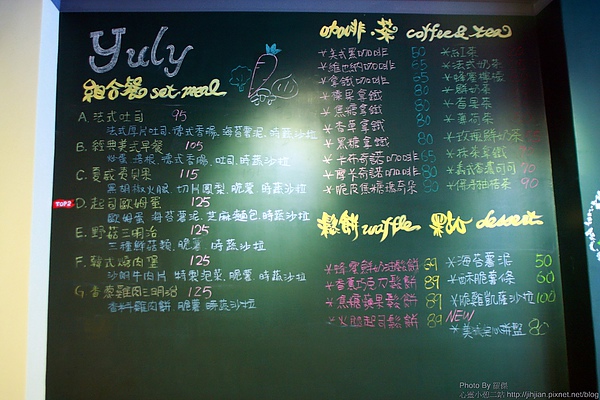 Yuly
組合餐 set meal
A. 法式吐司 95
法式厚片吐司.德式香腸.海苔薯泥.時蔬沙拉
B. 經典美式早餐 105
炒蛋.培根.德式香腸.吐司.時蔬沙拉
C. 夏威夷貝果 115
黑胡椒火腿.切片鳳梨.脆薯.時蔬沙拉
TOP2
D. 起司歐姆蛋 125
歐姆蛋.海苔薯泥.芝麻麵包.時蔬沙拉
E. 野菇三明治 125
三種鮮菇類.脆薯.時蔬沙拉
F. 韓式燒肉堡 125
沙朗牛肉片.特製泡菜.脆薯.時蔬沙拉
G. 香蔥雞肉三明治 125
香料雞肉餅.脆薯.時蔬沙拉
咖啡.茶 coffee & tea
*美式黑咖啡 50
*維也納咖啡 65
*拿鐵咖啡 65
*榛果拿鐵 80
*焦糖拿鐵 80
*杏果拿鐵 80
*黑糖拿鐵 80
*卡布奇諾咖啡 65
*摩卡奇諾咖啡 80
*脆皮焦糖瑪奇朵 80
*紅茶
*法式奶茶
*蜂蜜檸檬
*鮮奶茶
*杏果茶
*薄荷茶
*玫瑰鮮奶茶
*抹茶拿鐵
*義式杏濃可可 70
*佛手柚搭茶 90
鬆餅 waffle
*蜂蜜鮮奶油鬆餅 89
*香蕉巧克力鬆餅 89
*焦糖蘋果鬆餅 89
*火腿起司鬆餅 89
果 dessert
*海苔薯泥 50
*酥脆薯條 60
*脆雞凱薩沙拉 100
NEW
*美式點心拼盤 80
Photo By 甜傑
心靈小憩二站 http://jihjian.pixnet.net/blog